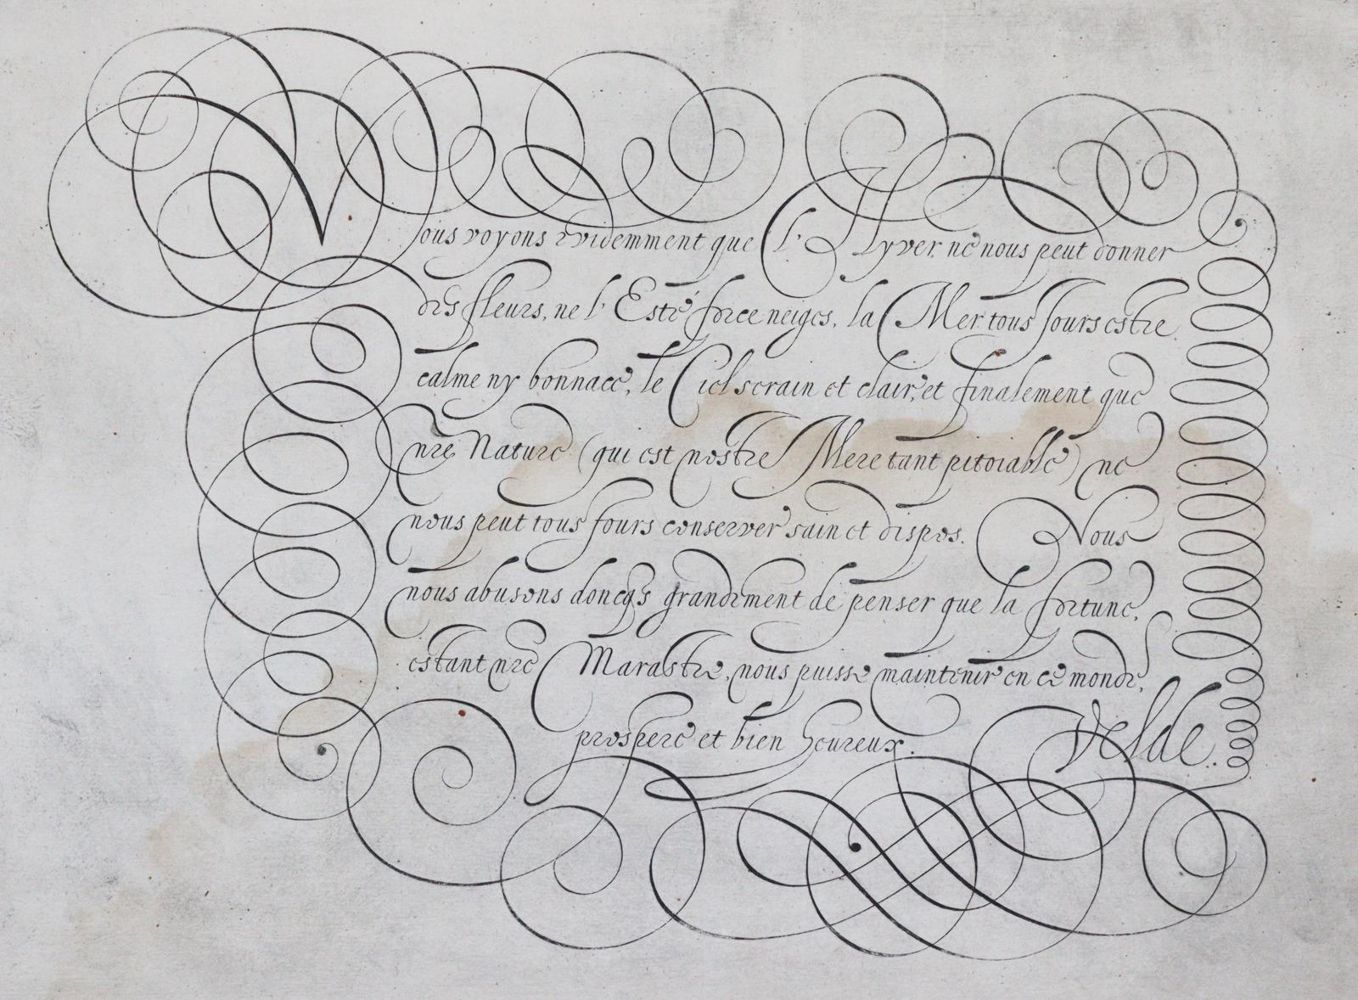 Vous voyons evidemment que l'Hyver ne nous peut donner
des fleurs, ne l'Esté force neiges, la Mer tous jours estre
calme ny bonnace, le Ciel serain et clair, et finalement que
nre Nature (qui est nostre Mere tant pitoiable) ne
nous peut tous jours conserver sain et dispos. Nous
nous abusons doncqs grandement de penser que la fortune,
estant nre Marastre, nous puisse maintenir en ce monde,
prospere et bien heureux.
Velde.